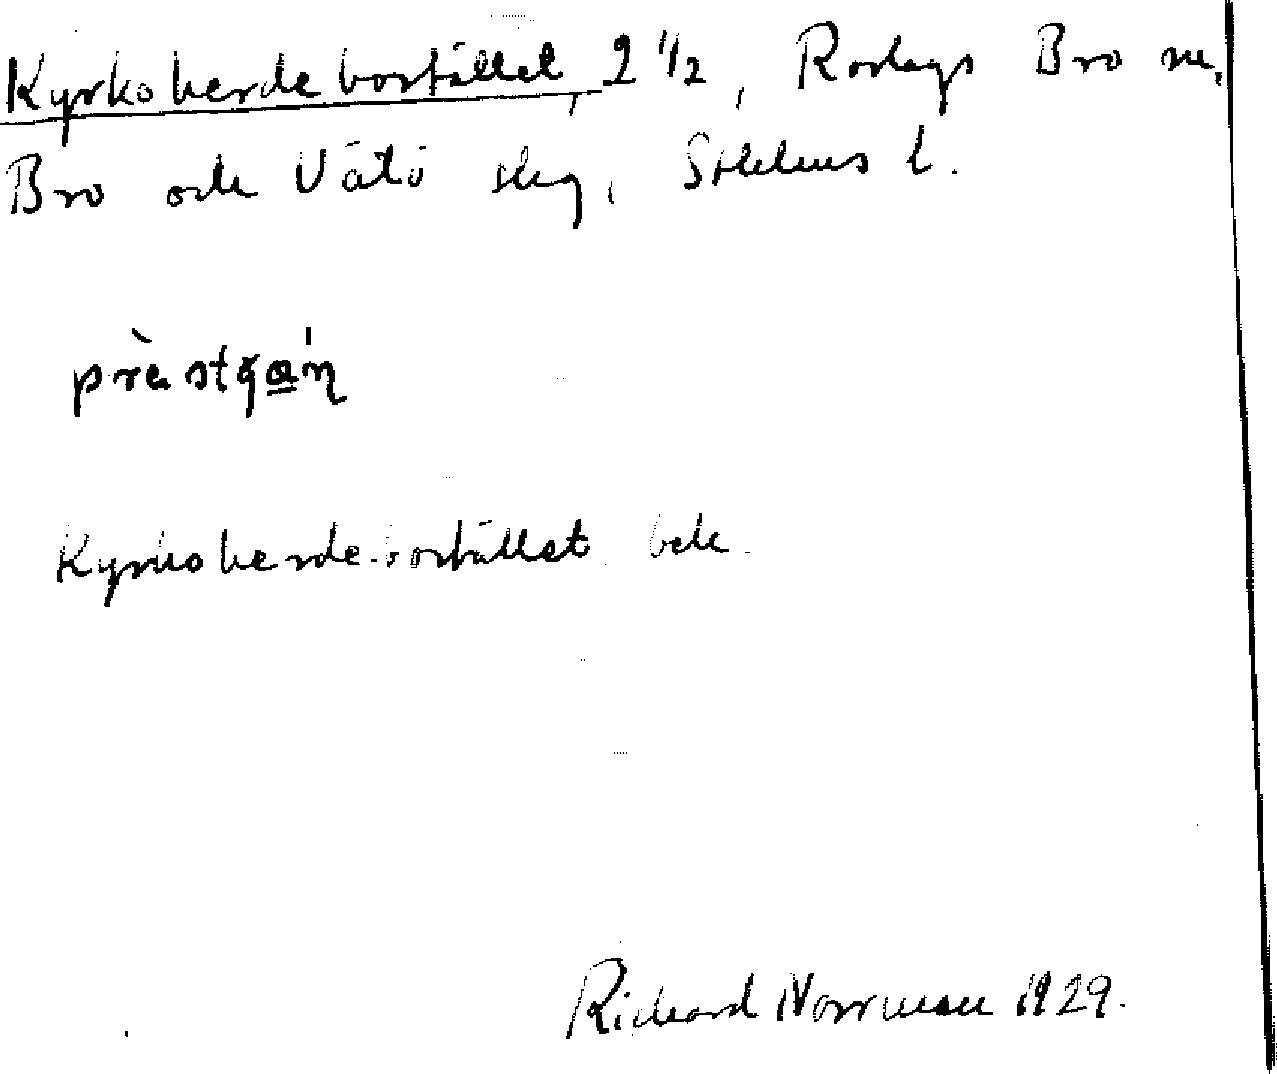 Kyrkoherdebostället, 2 1/2, Roslags Bro sn,
Bro och Vätö skg, Sthlms l.
prὰstgα̳'η
Kyrkoherdebostället bek.
Richard Norrman 1929.